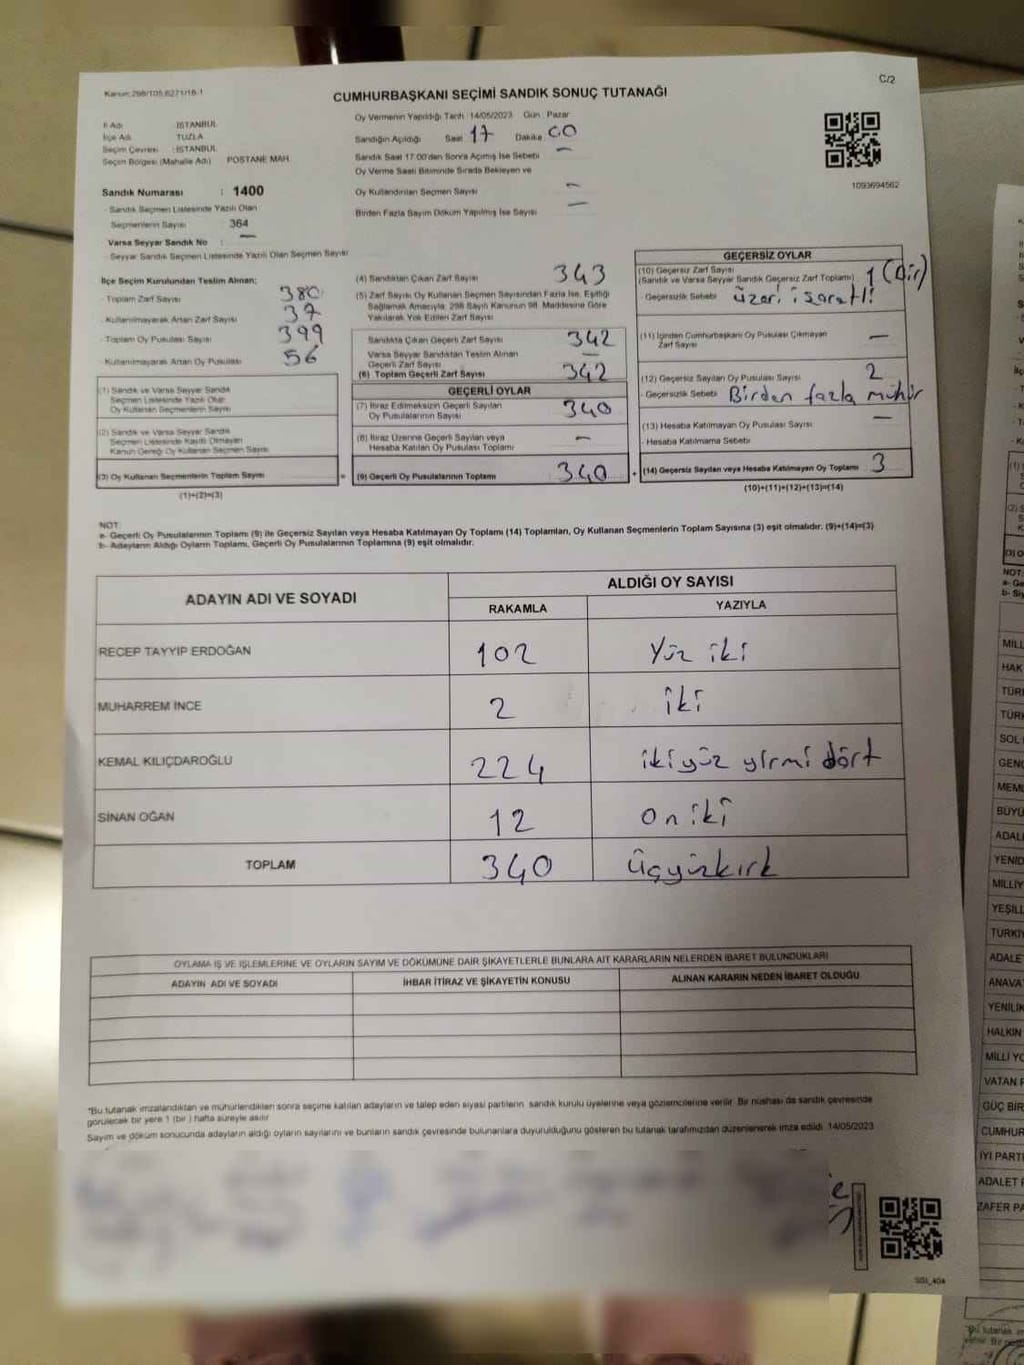 Kanun:298/105,6271/18-1
C/2
CUMHURBAŞKANI SEÇİMİ SANDIK SONUÇ TUTANAĞI
İl Adı : İSTANBUL
İlçe Adı : TUZLA
Seçim Çevresi : İSTANBUL
Seçim Bölgesi (Mahalle Adı) POSTANE MAH.
Sandık Numarası : 1400
- Sandık Seçmen Listesinde Yazılı Olan
Seçmenlerin Sayısı 364
Varsa Seyyar Sandık No : —
- Seyyar Sandık Seçmen Listesinde Yazılı Olan Seçmen Sayısı
Oy Vermenin Yapıldığı Tarih :14/05/2023 Gün : Pazar
Sandığın Açıldığı Saat 17 Dakika 00
Sandık Saat 17:00'den Sonra Açılmış İse Sebebi —
Oy Verme Saati Bitiminde Sırada Bekleyen ve
Oy Kullandırılan Seçmen Sayısı —
Birden Fazla Sayım Döküm Yapılmış İse Sayısı —
1093694562
İlçe Seçim Kurulundan Teslim Alınan:
- Toplam Zarf Sayısı 380
- Kullanılmayarak Artan Zarf Sayısı 37
- Toplam Oy Pusulası Sayısı 399
- Kullanılmayarak Artan Oy Pusulası 56
(1) Sandık ve Varsa Seyyar Sandık
Seçmen Listesinde Yazılı Olup
Oy Kullanan Seçmenlerin Sayısı
(2) Sandık ve Varsa Seyyar Sandık
Seçmen Listesinde Kayıtlı Olmayan
Kanun Gereği Oy Kullanan Seçmen Sayısı
(3) Oy Kullanan Seçmenlerin Toplam Sayısı =
(1)+(2)=(3)
(4) Sandıktan Çıkan Zarf Sayısı 343
(5) Zarf Sayısı Oy Kullanan Seçmen Sayısından Fazla İse, Eşitliği
Sağlamak Amacıyla, 298 Sayılı Kanunun 98. Maddesine Göre
Yakılarak Yok Edilen Zarf Sayısı
Sandıkta Çıkan Geçerli Zarf Sayısı 342
Varsa Seyyar Sandıktan Teslim Alınan
Geçerli Zarf Sayısı —
(6) Toplam Geçerli Zarf Sayısı 342
GEÇERLİ OYLAR
(7) İtiraz Edilmeksizin Geçerli Sayılan
Oy Pusulalarının Sayısı 340
(8) İtiraz Üzerine Geçerli Sayılan veya
Hesaba Katılan Oy Pusulası Toplamı —
(9) Geçerli Oy Pusulalarının Toplamı 340 +
GEÇERSİZ OYLAR
(10) Geçersiz Zarf Sayısı
(Sandık ve Varsa Seyyar Sandık Geçersiz Zarf Toplamı) 1 (bir)
- Geçersizlik Sebebi üzeri işaretli
(11) İçinden Cumhurbaşkanı Oy Pusulası Çıkmayan
Zarf Sayısı —
(12) Geçersiz Sayılan Oy Pusulası Sayısı 2
- Geçersizlik Sebebi Birden fazla mühür
(13) Hesaba Katılmayan Oy Pusulası Sayısı —
- Hesaba Katılmama Sebebi
(14) Geçersiz Sayılan veya Hesaba Katılmayan Oy Toplamı 3
(10)+(11)+(12)+(13)=(14)
NOT:
a- Geçerli Oy Pusulalarının Toplamı (9) ile Geçersiz Sayılan veya Hesaba Katılmayan Oy Toplamı (14) Toplamları, Oy Kullanan Seçmenlerin Toplam Sayısına (3) eşit olmalıdır. (9)+(14)=(3)
b- Adayların Aldığı Oyların Toplamı, Geçerli Oy Pusulalarının Toplamına (9) eşit olmalıdır.
ADAYIN ADI VE SOYADI
ALDIĞI OY SAYISI
RAKAMLA YAZIYLA
RECEP TAYYİP ERDOĞAN 102 Yüz iki
MUHARREM İNCE 2 iki
KEMAL KILIÇDAROĞLU 224 ikiyüz yirmi dört
SİNAN OĞAN 12 on iki
TOPLAM 340 üçyüzkırk
OYLAMA İŞ VE İŞLEMLERİNE VE OYLARIN SAYIM VE DÖKÜMÜNE DAİR ŞİKAYETLERLE BUNLARA AİT KARARLARIN NELERDEN İBARET BULUNDUKLARI
ADAYIN ADI VE SOYADI İHBAR İTİRAZ VE ŞİKAYETİN KONUSU ALINAN KARARIN NEDEN İBARET OLDUĞU
*Bu tutanak imzalandıktan ve mühürlendikten sonra seçime katılan adayların ve talep eden siyasi partilerin sandık kurulu üyelerine veya gözlemcilerine verilir. Bir nüshası da sandık çevresinde
görülecek bir yere 1 (bir) hafta süreyle asılır.
Sayım ve döküm sonucunda adayların aldığı oyların sayılarını ve bunların sandık çevresinde bulunanlara duyurulduğunu gösteren bu tutanak tarafımızdan düzenlenerek imza edildi. 14/05/2023
MİLL
HAK
TÜRK
SOL
GENÇ
MEM
BÜYÜ
ADAL
YENİD
MİLLİY
YEŞİL
TÜRKİY
ADALE
ANAVA
YENİLİK
HALKIN
MİLLİ YO
VATAN P
GÜÇ BİR
CUMHUR
İYİ PARTİ
ADALET
ZAFER PA